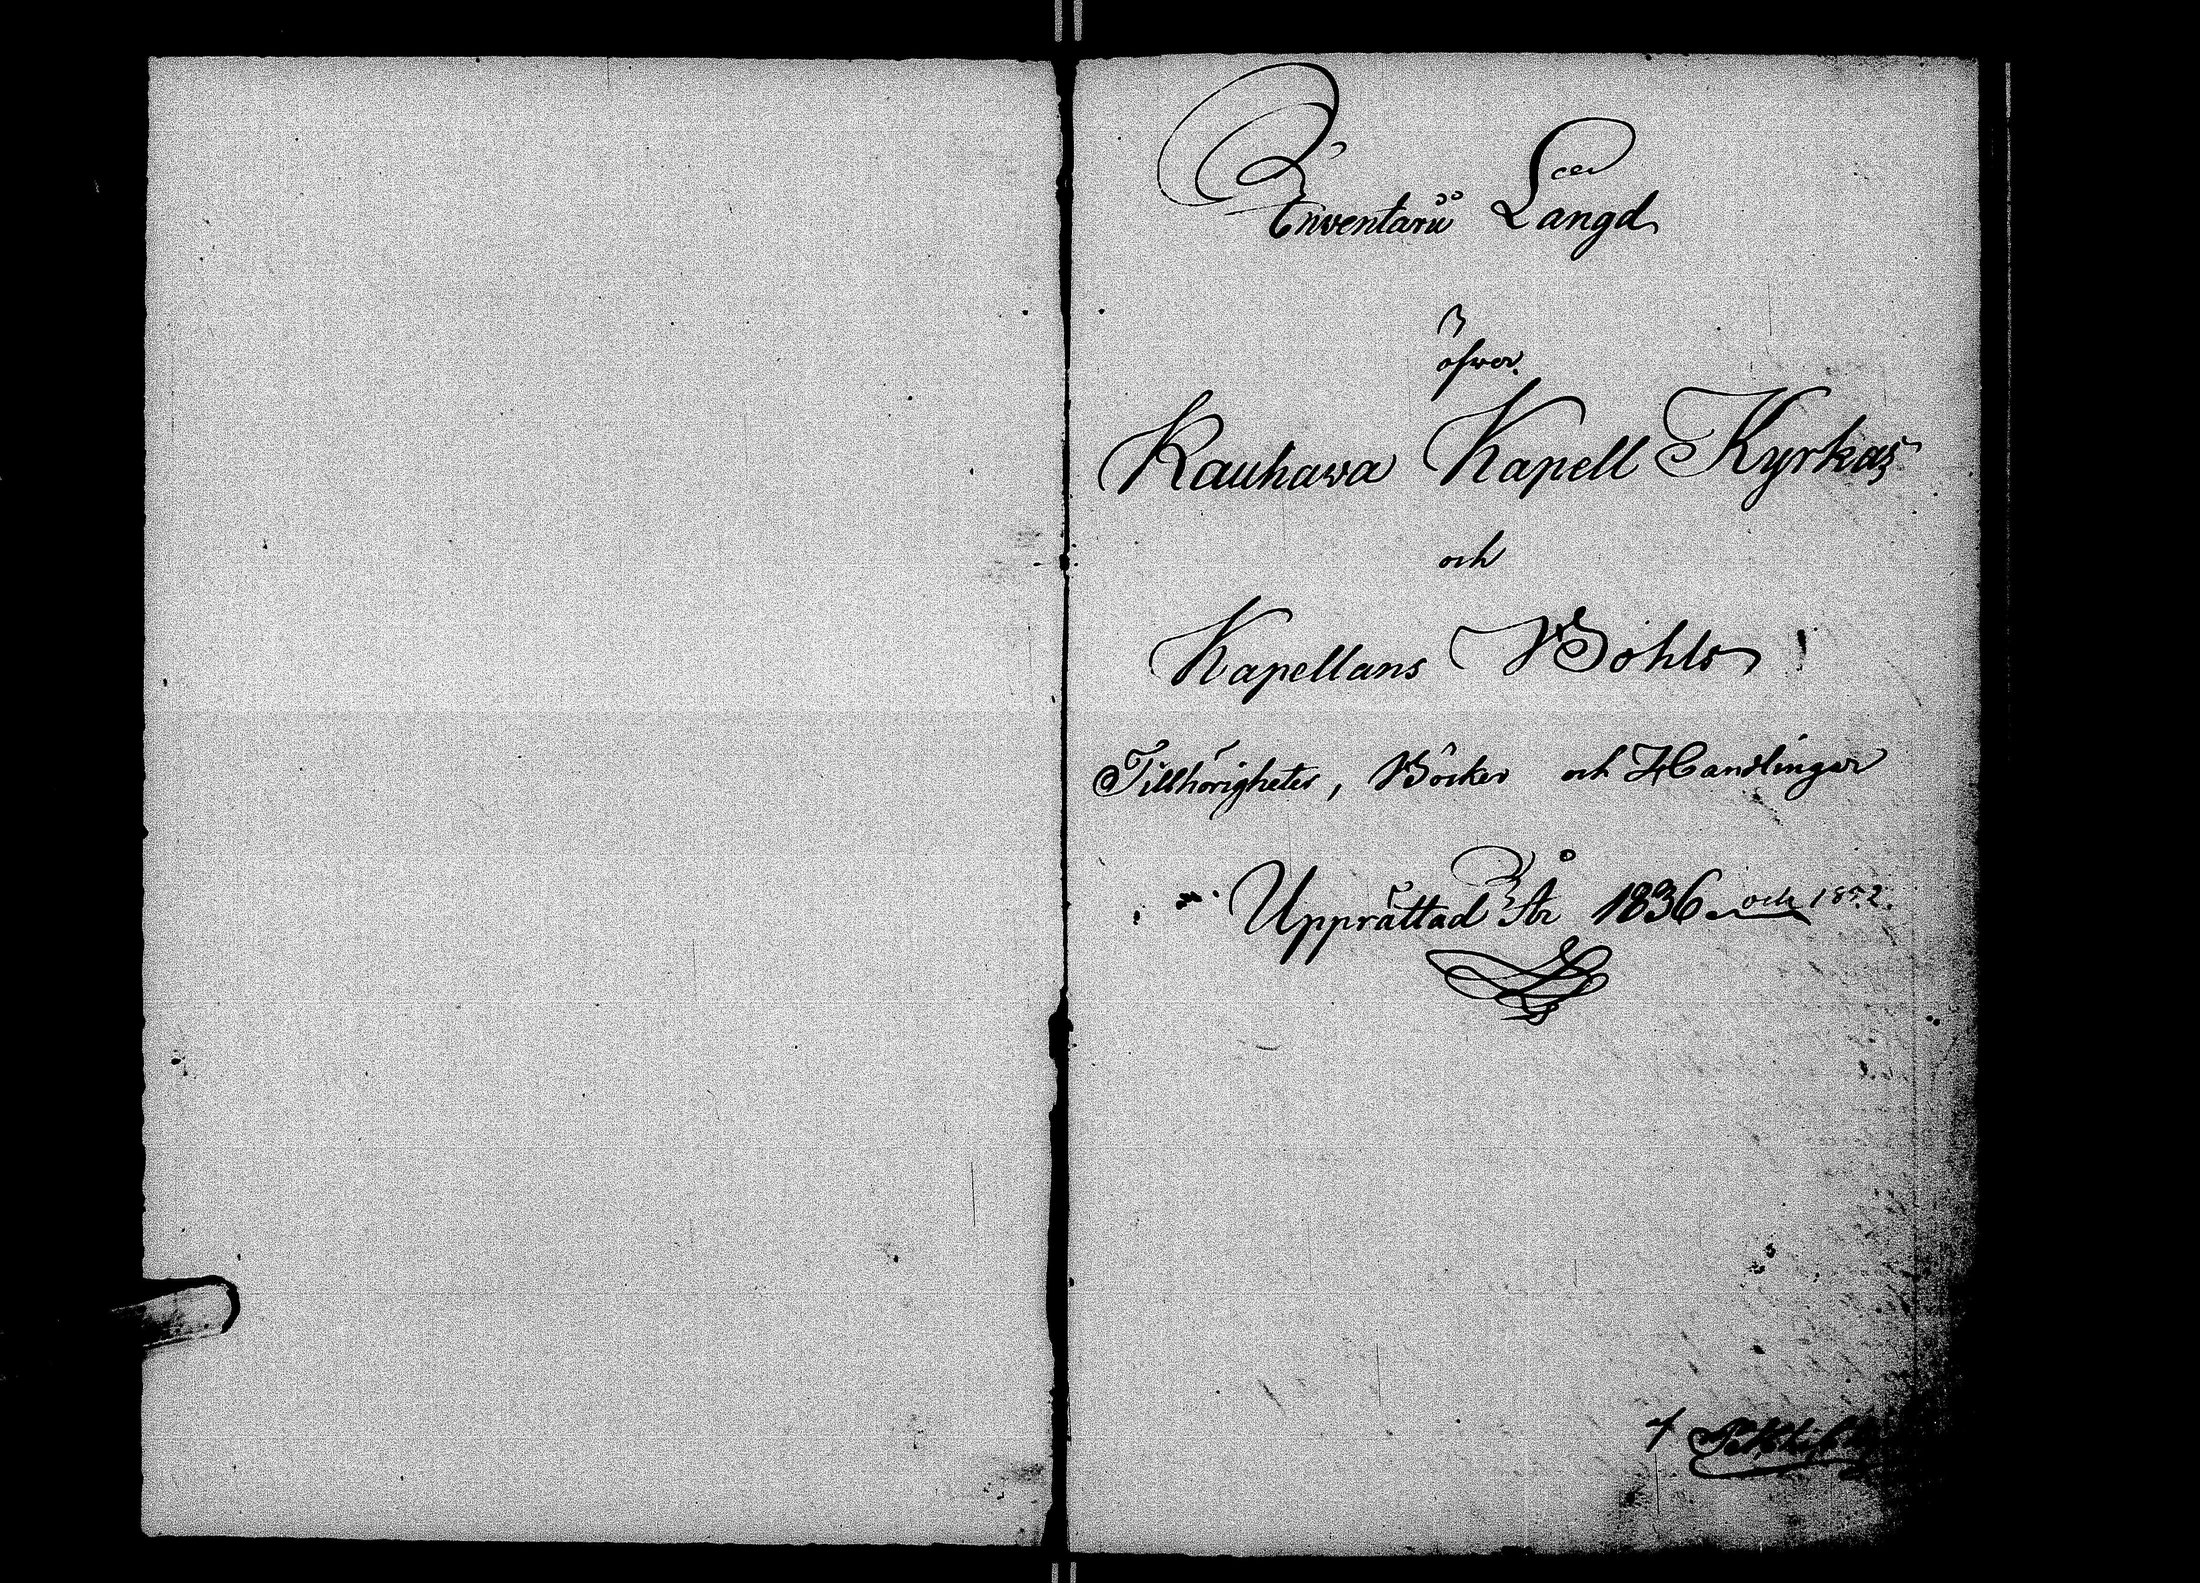 Inventarii Längd
öfwer
Kauhawa Kapell Kyrkas
och
Kapellans Bohls
Tillhörigheter, Böcker och Handlingar
Upprättad År 1836 och 1852.
af